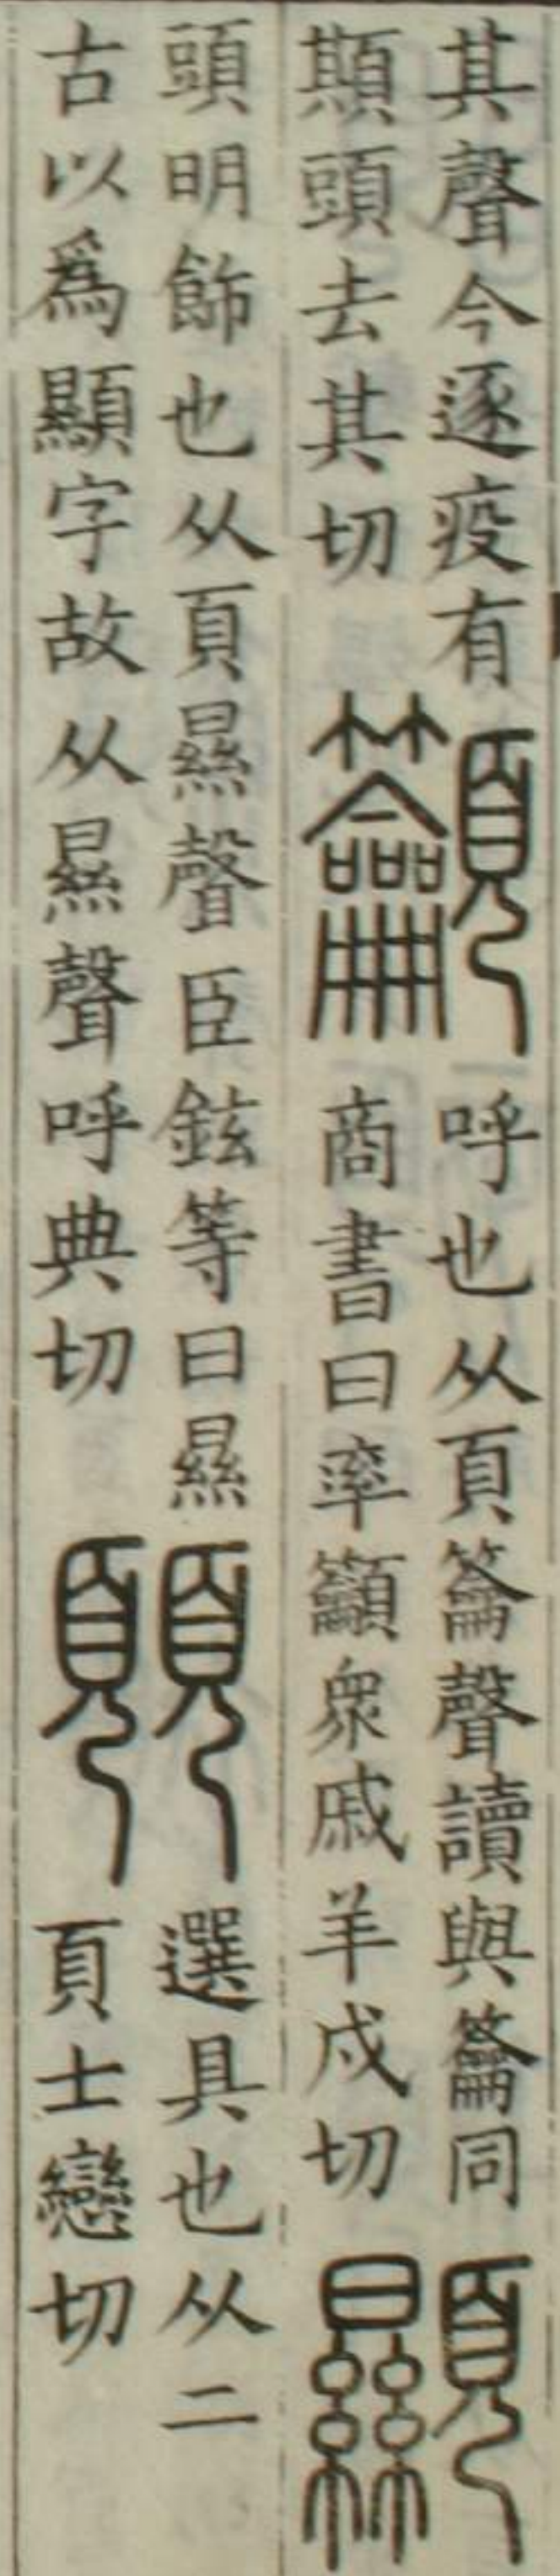 其聲今逐疫有
䫏頭去其切
籲
呼也从頁籥聲讀與籥同
商書曰率籲衆戚羊戍切
顯
頭明飾也从頁㬎聲臣鉉等曰㬎
古以爲顯字故从㬎聲呼典切
選具也从二
頁士戀切